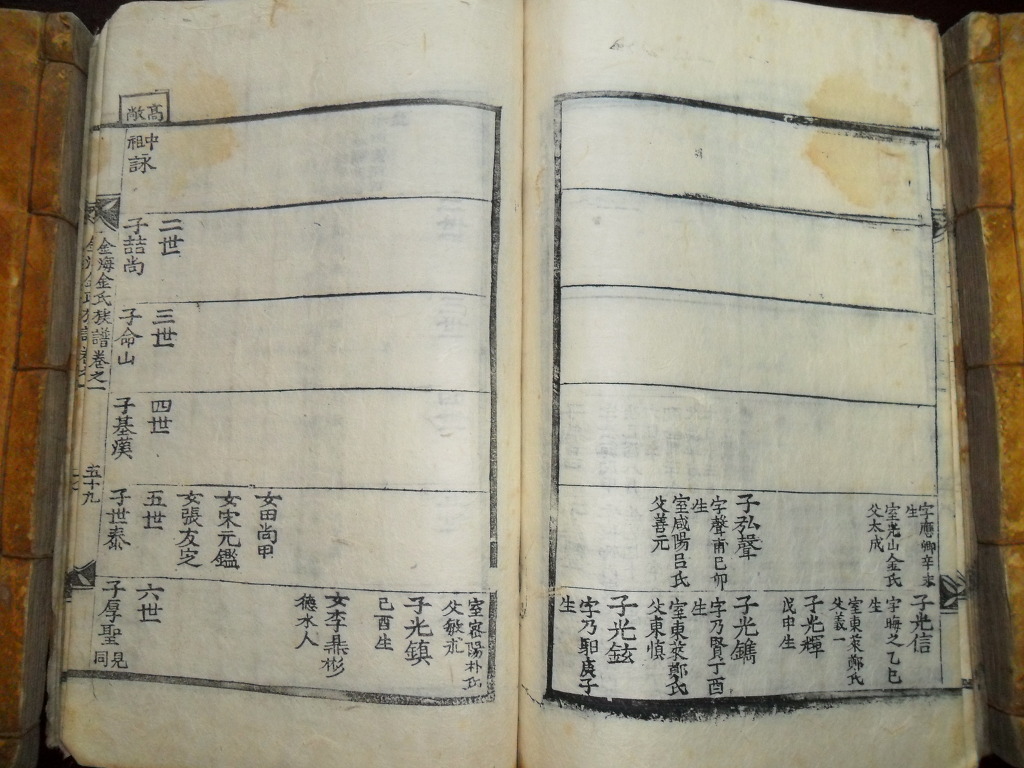 字應卿辛未
生
室光山金氏
父太成
子弘聲
字聲甫己卯
生
室咸陽呂氏
父善元
子光信
字晦之乙巳
生
室東萊鄭氏
父義一
子光輝
戊申生
子光鐫
字乃賢丁酉
生
室東萊鄭氏
父東愼
子光鉉
字乃聃庚子
生
高敞
中祖
詠
二世
子喆尚
三世
子命山
四世
子基漢
女田尚甲
女宋元鑑
女張友定
五世
子世泰
室密陽朴氏
父敏求
子光鎮
己酉生
女李鼎彬
德水人
六世
子厚聖
見同
金海金氏族譜卷之一
五十九